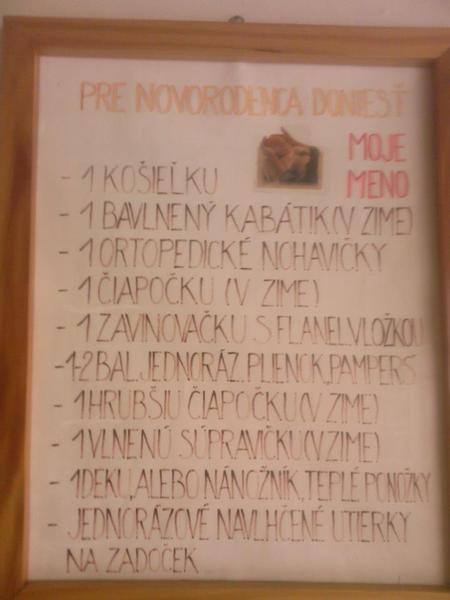 PRE NOVORODENCA DONIESŤ
MOJE
MENO
- 1 KOŠIEĽKU
- 1 BAVLNENÝ KABÁTIK (V ZIME)
- 1 ORTOPEDICKÉ NOHAVIČKY
- 1 ČIAPOČKU (V ZIME)
- 1 ZAVINOVAČKU S FLANEL.VLOŽKOU
- 1-2 BAL. JEDNORÁZ. PLIENOK, PAMPERS
- 1 HRUBŠIU ČIAPOČKU (V ZIME)
- 1 VLNENÚ SÚPRAVIČKU (V ZIME)
- 1 DEKU, ALEBO NÁNOŽNÍK, TEPLÉ PONOŽKY
- JEDNORÁZOVÉ NAVLHČENÉ UTIERKY
NA ZADOČEK